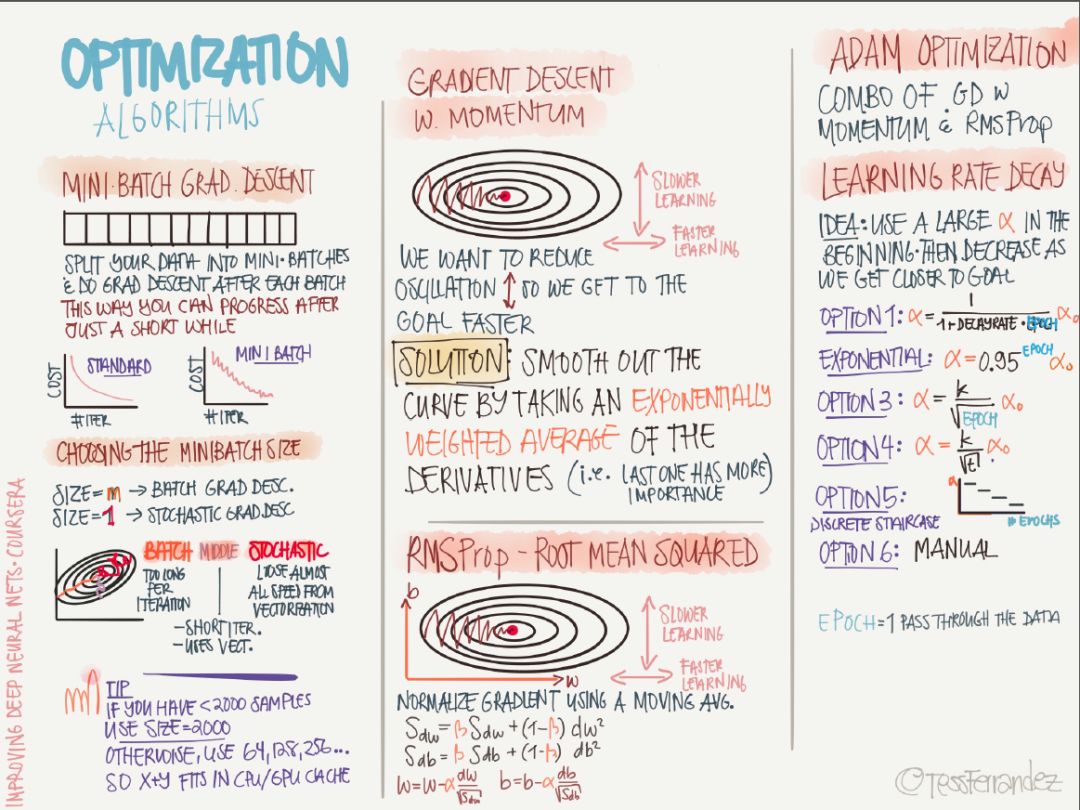 OPTIMIZATION
ALGORITHMS
MINI-BATCH GRAD. DESCENT
SPLIT YOUR DATA INTO MINI-BATCHES
& DO GRAD DESCENT AFTER EACH BATCH
THIS WAY YOU CAN PROGRESS AFTER
JUST A SHORT WHILE
COST
STANDARD
# ITER
COST
MINI BATCH
# ITER
CHOOSING THE MINIBATCH SIZE
SIZE = m → BATCH GRAD DESC.
SIZE = 1 → STOCHASTIC GRAD.DESC
BATCH MIDDLE STOCHASTIC
TOO LONG
PER
ITERATION
LOSE ALMOST
ALL SPEED FROM
VECTORIZATION
- SHORT ITER.
- USES VECT.
TIP
IF YOU HAVE < 2000 SAMPLES
USE SIZE = 2000
OTHERWISE, USE 64, 128, 256...
SO X+Y FITS IN CPU/GPU CACHE
IMPROVING DEEP NEURAL NETS · COURSERA
GRADIENT DESCENT
W. MOMENTUM
SLOWER
LEARNING
FASTER
LEARNING
WE WANT TO REDUCE
OSCILLATION ↕ SO WE GET TO THE
GOAL FASTER
SOLUTION: SMOOTH OUT THE
CURVE BY TAKING AN EXPONENTIALLY
WEIGHTED AVERAGE OF THE
DERIVATIVES (i.e. LAST ONE HAS MORE
IMPORTANCE)
RMSProp - ROOT MEAN SQUARED
b
SLOWER
LEARNING
w
FASTER
LEARNING
NORMALIZE GRADIENT USING A MOVING AVG.
Sdw = β Sdw + (1-β) dw²
Sdb = β Sdb + (1-β) db²
w = w - α dw/√Sdw b = b - α db/√Sdb
ADAM OPTIMIZATION
COMBO OF GD W
MOMENTUM & RMSProp
LEARNING RATE DECAY
IDEA: USE A LARGE α IN THE
BEGINNING. THEN DECREASE AS
WE GET CLOSER TO GOAL
OPTION 1: α = 1/(1 + DECAYRATE · EPOCH) α₀
EXPONENTIAL: α = 0.95^EPOCH α₀
OPTION 3: α = k/√EPOCH α₀
OPTION 4: α = k/√t α₀
OPTION 5:
DISCRETE STAIRCASE
α
# EPOCHS
OPTION 6: MANUAL
EPOCH = 1 PASS THROUGH THE DATA
©TessFerrandez